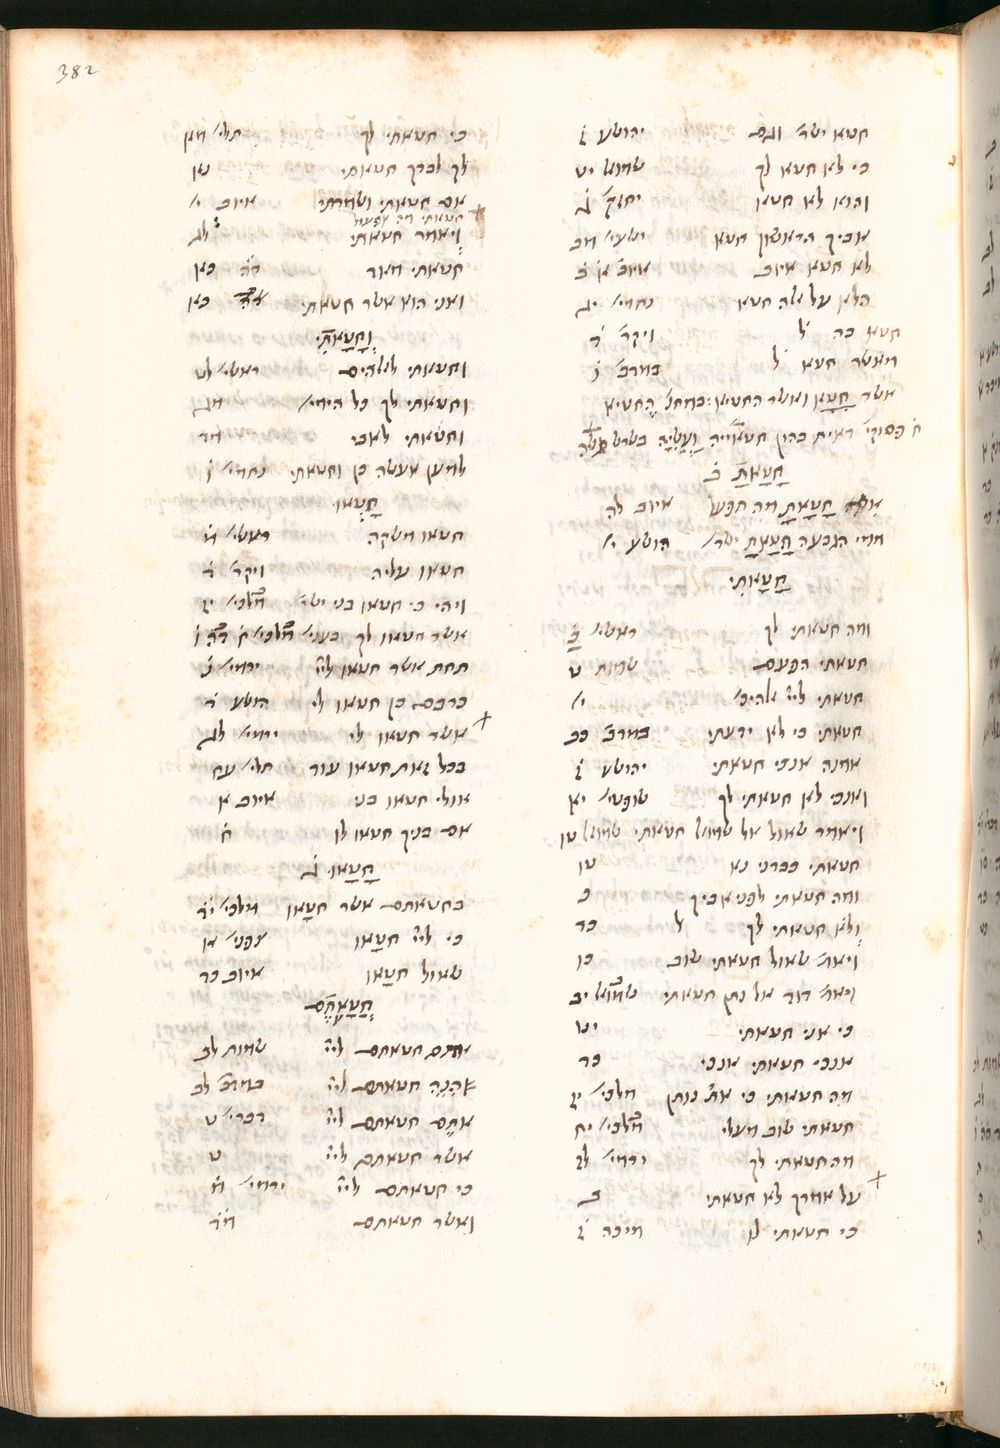 382
חטא ישר׳ וגם יהושע ז
כי לא חטא לך שמואל יט
והוא לא חטא יחזק׳ ג
אביך הראשון חטא ישעי׳ מב
לא חטא איוב איוב א ב
הלא על אלה חטא נחמי׳ יג
חטא בה ל ויקר׳ ד
מאשר חטא ל במדב׳ ו
אשר חטא ואשר החטיא
ח פסוקי׳ ראית בהון
חטאת ב
חטאת מה תפעל איוב לה
מימי הגבעה חטאת ישר׳ הושע י
חטאתי
ומה חטאתי לך ראשי׳ כ
חטאתי הפעם שמות ט
חטאתי לי״י אלהיכ׳ י
חטאתי כי לא ידעתי במדב׳ כב
אמנה אנכי חטאתי יהושע ז
ואנכי לא חטאתי לך שופטי׳ יא
ויאמר שאול אל שמואל חטאתי שמואל טו
חטאתי כבדני נא טו
ומה חטאתי לפני אביך כ
ולא חטאתי לך ל כד
ויאמ׳ שאול חטאתי שוב כו
ויאמ׳ דוד אל נתן חטאתי שמואל יב
כי אני חטאתי יט
אנכי חטאתי אנכי כד
מה חטאתי כי את׳ נותן מלכי׳ יח
חטאתי שוב מעלי מלכי׳ יח
מה חטאתי לך ירמי׳ לז
על אמרך לא חטאתי ב
כי חטאתי לו מיכה ז
כי חטאתי לך תלי׳ מא
לך לבדך חטאתי נא
אם חטאתי ושמרתני איוב י
חטאתי מה אפעל
ויאמר חטאתי לג
חטאתי מאד כא
ואני הוא אשר חטאתי כא
וחטאתי
וחטאתי לאלהים ראשי׳ לט
וחטאתי לך כל הימי׳ מג
וחטאתי לאבי מד
למען אעשה כן וחטאתי נחמי׳ ו
חטאו
חטאו משקה ראשי׳ מ
חטאו עליה ויקר׳ ד
ויהי כי חטאו בני ישר׳ מלכי׳ יז
אשר חטאו לך
תחת אשר חטאו לי״י ירמי׳ נ
כרבם כן חטאו לי הושע ד
אשר חטאו לי ירמי׳ לג
בכל זאת חטאו עוד תלי׳ עח
אולי חטאו בני איוב א
אם בניך חטאו לו ח
חטאו ג
בחטאתם אשר חטאו מלכי׳ יו
כי לי״י חטאו צפני׳ א
שאול חטאו איוב כד
חטאתם
אתם חטאתם לי״י שמות לב
הנה חטאתם לי״י במדב׳ לב
אתם חטאתם לי״י דברי׳ ט
אשר חטאתם לי״י ט
כי חטאתם לי״י ירמי׳ מ
ואשר חטאתם מד